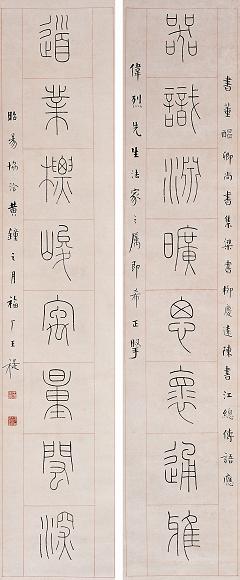 書董醞卿尚書集梁書柳慶遠陳書江總傳語應
器識淵曠思懷通雅
偉烈先生法家之屬即希正
道業標峻㝢量閎深
昭昜協洽黃鐘之月福厂王禔